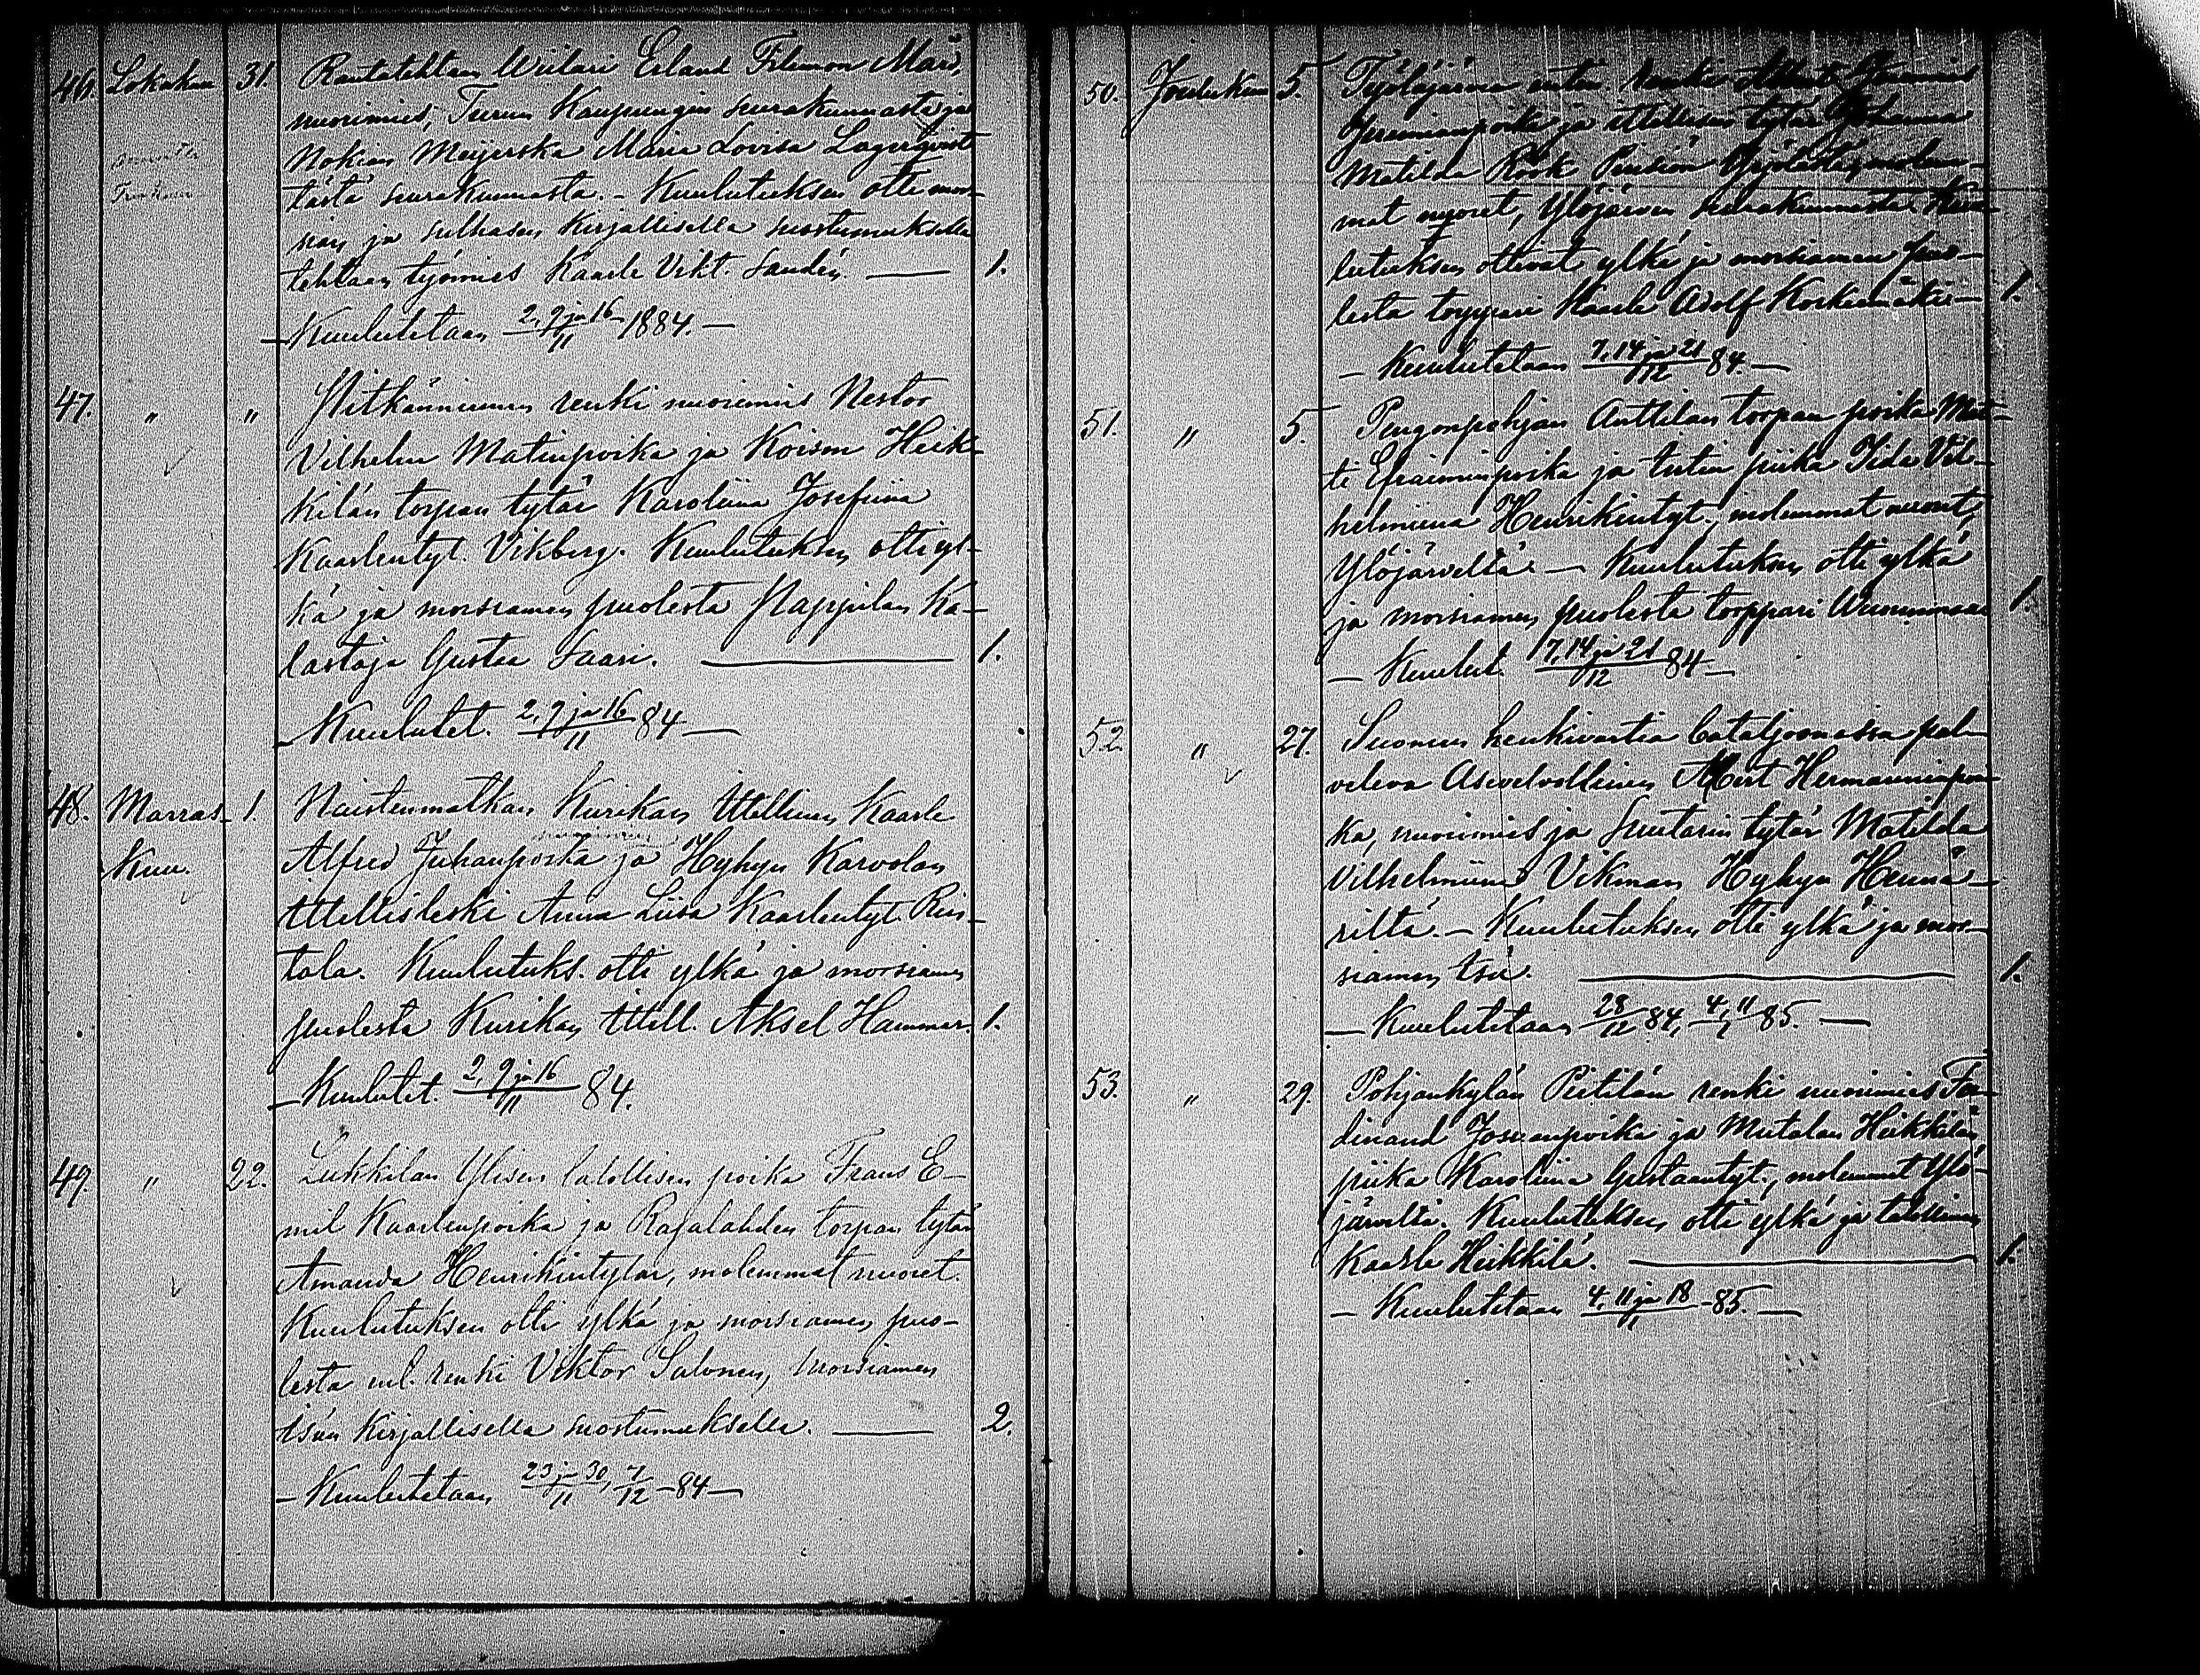 46. Lokakuu 31. Rautatehtaan Wiilari Erland Filemon Märd,
nuorimies, Turun Kaupungin seurakunnasta ja
Nokian Meijerska Maria Lovisa Lagerqvist
tästä seurakunnasta. - Kuulutuksen otti mor-
sian ja sulhasen kirjallisella suostumuksella
tehtaan työmies Kaarle Vikt. Sandén. — 1.
- Kuulutetaan 2, 9 ja 16/11 1884. -
47. " " Pitkänniemen renki nuorimies Nestor
Vilhelm Matinpoika ja Koison Heik-
kilän torpan tytär Karoliina Josefiina
Kaarlentyt. Vikberg. Kuulutuksen otti yl-
kä ja morsiamen puolesta Pappilan Ka-
lastaja Gustaa Saari. — 1.
- Kuulutet. 2, 9 ja 16/11 84 -
48. Marras- 1. Naistenmatkan Kurikan Itellinen Kaarle
Kuu. Alfred Juhanpoika nuorimies ja Hyhyn Karvolan
Itellisleski Anna Liisa Kaarlentyt. Rin-
tala. Kuulutuks. otti ylkä ja morsiamen
puolesta Kurikan Itell. Aksel Hammar. 1.
- Kuulutet. 2, 9 ja 16/11 84.
49. " 22. Lukkilan Ylisen talollisen poika Frans E-
mil Kaarlenpoika ja Rajalahden torpan tytär
Amanda Henrikintytär, molemmat nuoret.
Kuulutuksen otti ylkä ja morsiamen puo-
lesta ent. renki Viktor Salonen, morsiamen
isän kirjallisella suostumuksella. — 2.
- Kuulutetaan 23 ja 30/11, 7/12 -84 -
50. Joulukuu 5. Työläjärven renki
Jeremianpoika ja itellisen tytär Johanna
Matilda Rösk molem-
mat nuoret, Ylöjärven seurakunnasta. Kuu-
lutuksen ottivat ylkä ja morsiamen puo-
lesta torppari Kaarle Adolf Koskenmäki - 1.
- Kuulutetaan 7, 14 ja 21/12 84. -
51. " 5. Pengonpohjan Anttilan torpan poika Mat-
ti Efraiminpoika ja piika Iida Vil-
helmiina Henrikintyt., molemmat nuoret,
Ylöjärveltä. - Kuulutuksen otti ylkä
ja morsiamen puolesta torppari 1.
- Kuulut. 7, 14 ja 21/12 84 -
52. " 27. Suomen henkivartia bataljoonassa pal-
veleva Asevelvollinen Albert Hermanninpoi-
ka, nuorimies ja Suutarin tytär Matilda
Vilhelmiina Vikman Hyhyn Hennä-
riltä. - Kuulutuksen otti ylkä ja mor-
siamen isä. — 1.
- Kuulutetaan 28/12 84, 4, 11/1 85. -
53. " 29. Pohjankylän Pietilän renki nuorimies Fer-
dinand Josuanpoika ja Mutalan Heikkilän
piika Karoliina Gustaantyt., molemmat Ylö-
järveltä. Kuulutuksen otti ylkä ja talollinen
Kaarle Heikkilä. — 1.
- Kuulutetaan 4, 11 ja 18/1 -85. -